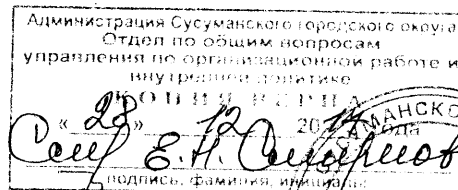 Администрация Сусуманского городского округа
Отдел по общим вопросам
управления по организационной работе и
внутренней политике
КОПИЯ ВЕРНА
«23» 12 2017 года
МАНСКО
Е.Н. Смирнов
подпись, фамилия, инициалы